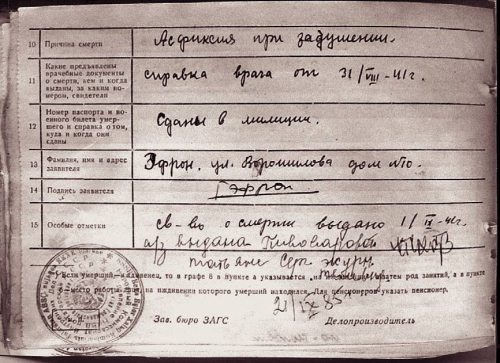 10 Причина смерти Асфиксия при задушении.
11 Какие предъявлены
врачебные документы
о смерти, кем и когда
выданы, за каким но-
мером, свидетели
справка врача от 31/VIII-41г.
12 Номер паспорта и во-
енного билета умер-
шего и справка о том,
куда и когда они
сданы
Сданы в милицию.
13 Фамилия, имя и адрес
заявителя
Эфрон, ул. Ворошилова дом
14 Подпись заявителя Г Эфрон
15 Особые отметки св-во о смерти выдано 1/IX-41г.
выдана Пивоваровой
Если умерший иждивенец, то в графе 8 в пункте а указывается затем род занятий, а в пункте
место работы на иждивении которого умерший находился. Для пенсионеров указать пенсионер.
21/IX 85
Зав. бюро ЗАГС Делопроизводитель